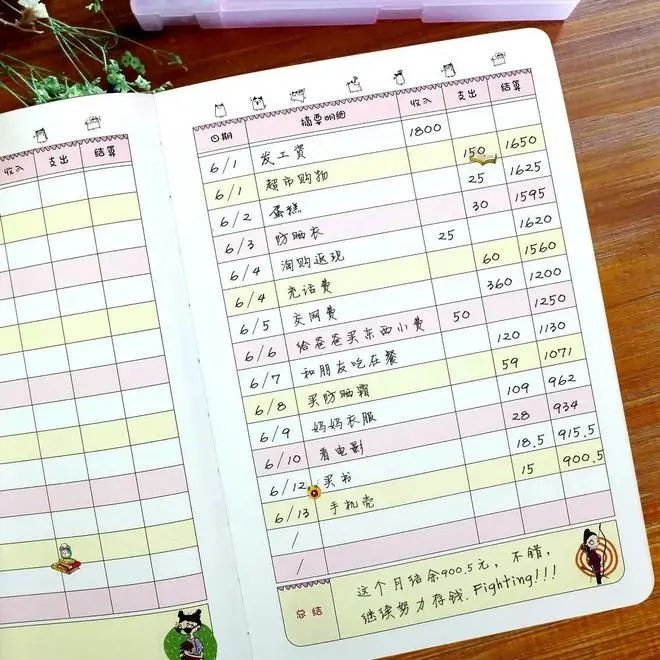 收入 支出 结算
日期 摘要明细 收入 支出 结算
6/1 发工资 1800
6/1 超市购物 150 1650
6/2 蛋糕 25 1625
6/3 防晒衣 30 1595
6/4 淘购返现 25 1620
6/4 充话费 60 1560
6/5 交网费 360 1200
6/6 给爸爸买东西小费 50 1250
6/7 和朋友吃在餐 120 1130
6/8 买防晒霜 59 1071
6/9 妈妈衣服 109 962
6/10 看电影 28 934
6/12 买书 18.5 915.5
6/13 手机壳 15 900.5
/
/
总结
这个月结余900.5元，不错，
继续努力存钱.Fighting!!!